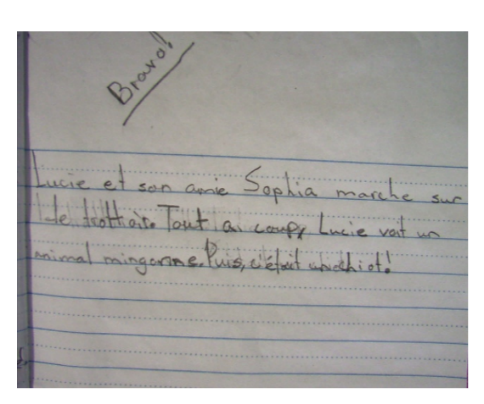 Bravo!
Lucie et son amie Sophia marche sur
le trottoire Tout a coup, Lucie voit un
animal mingonne. Puis, c'était un chiot!